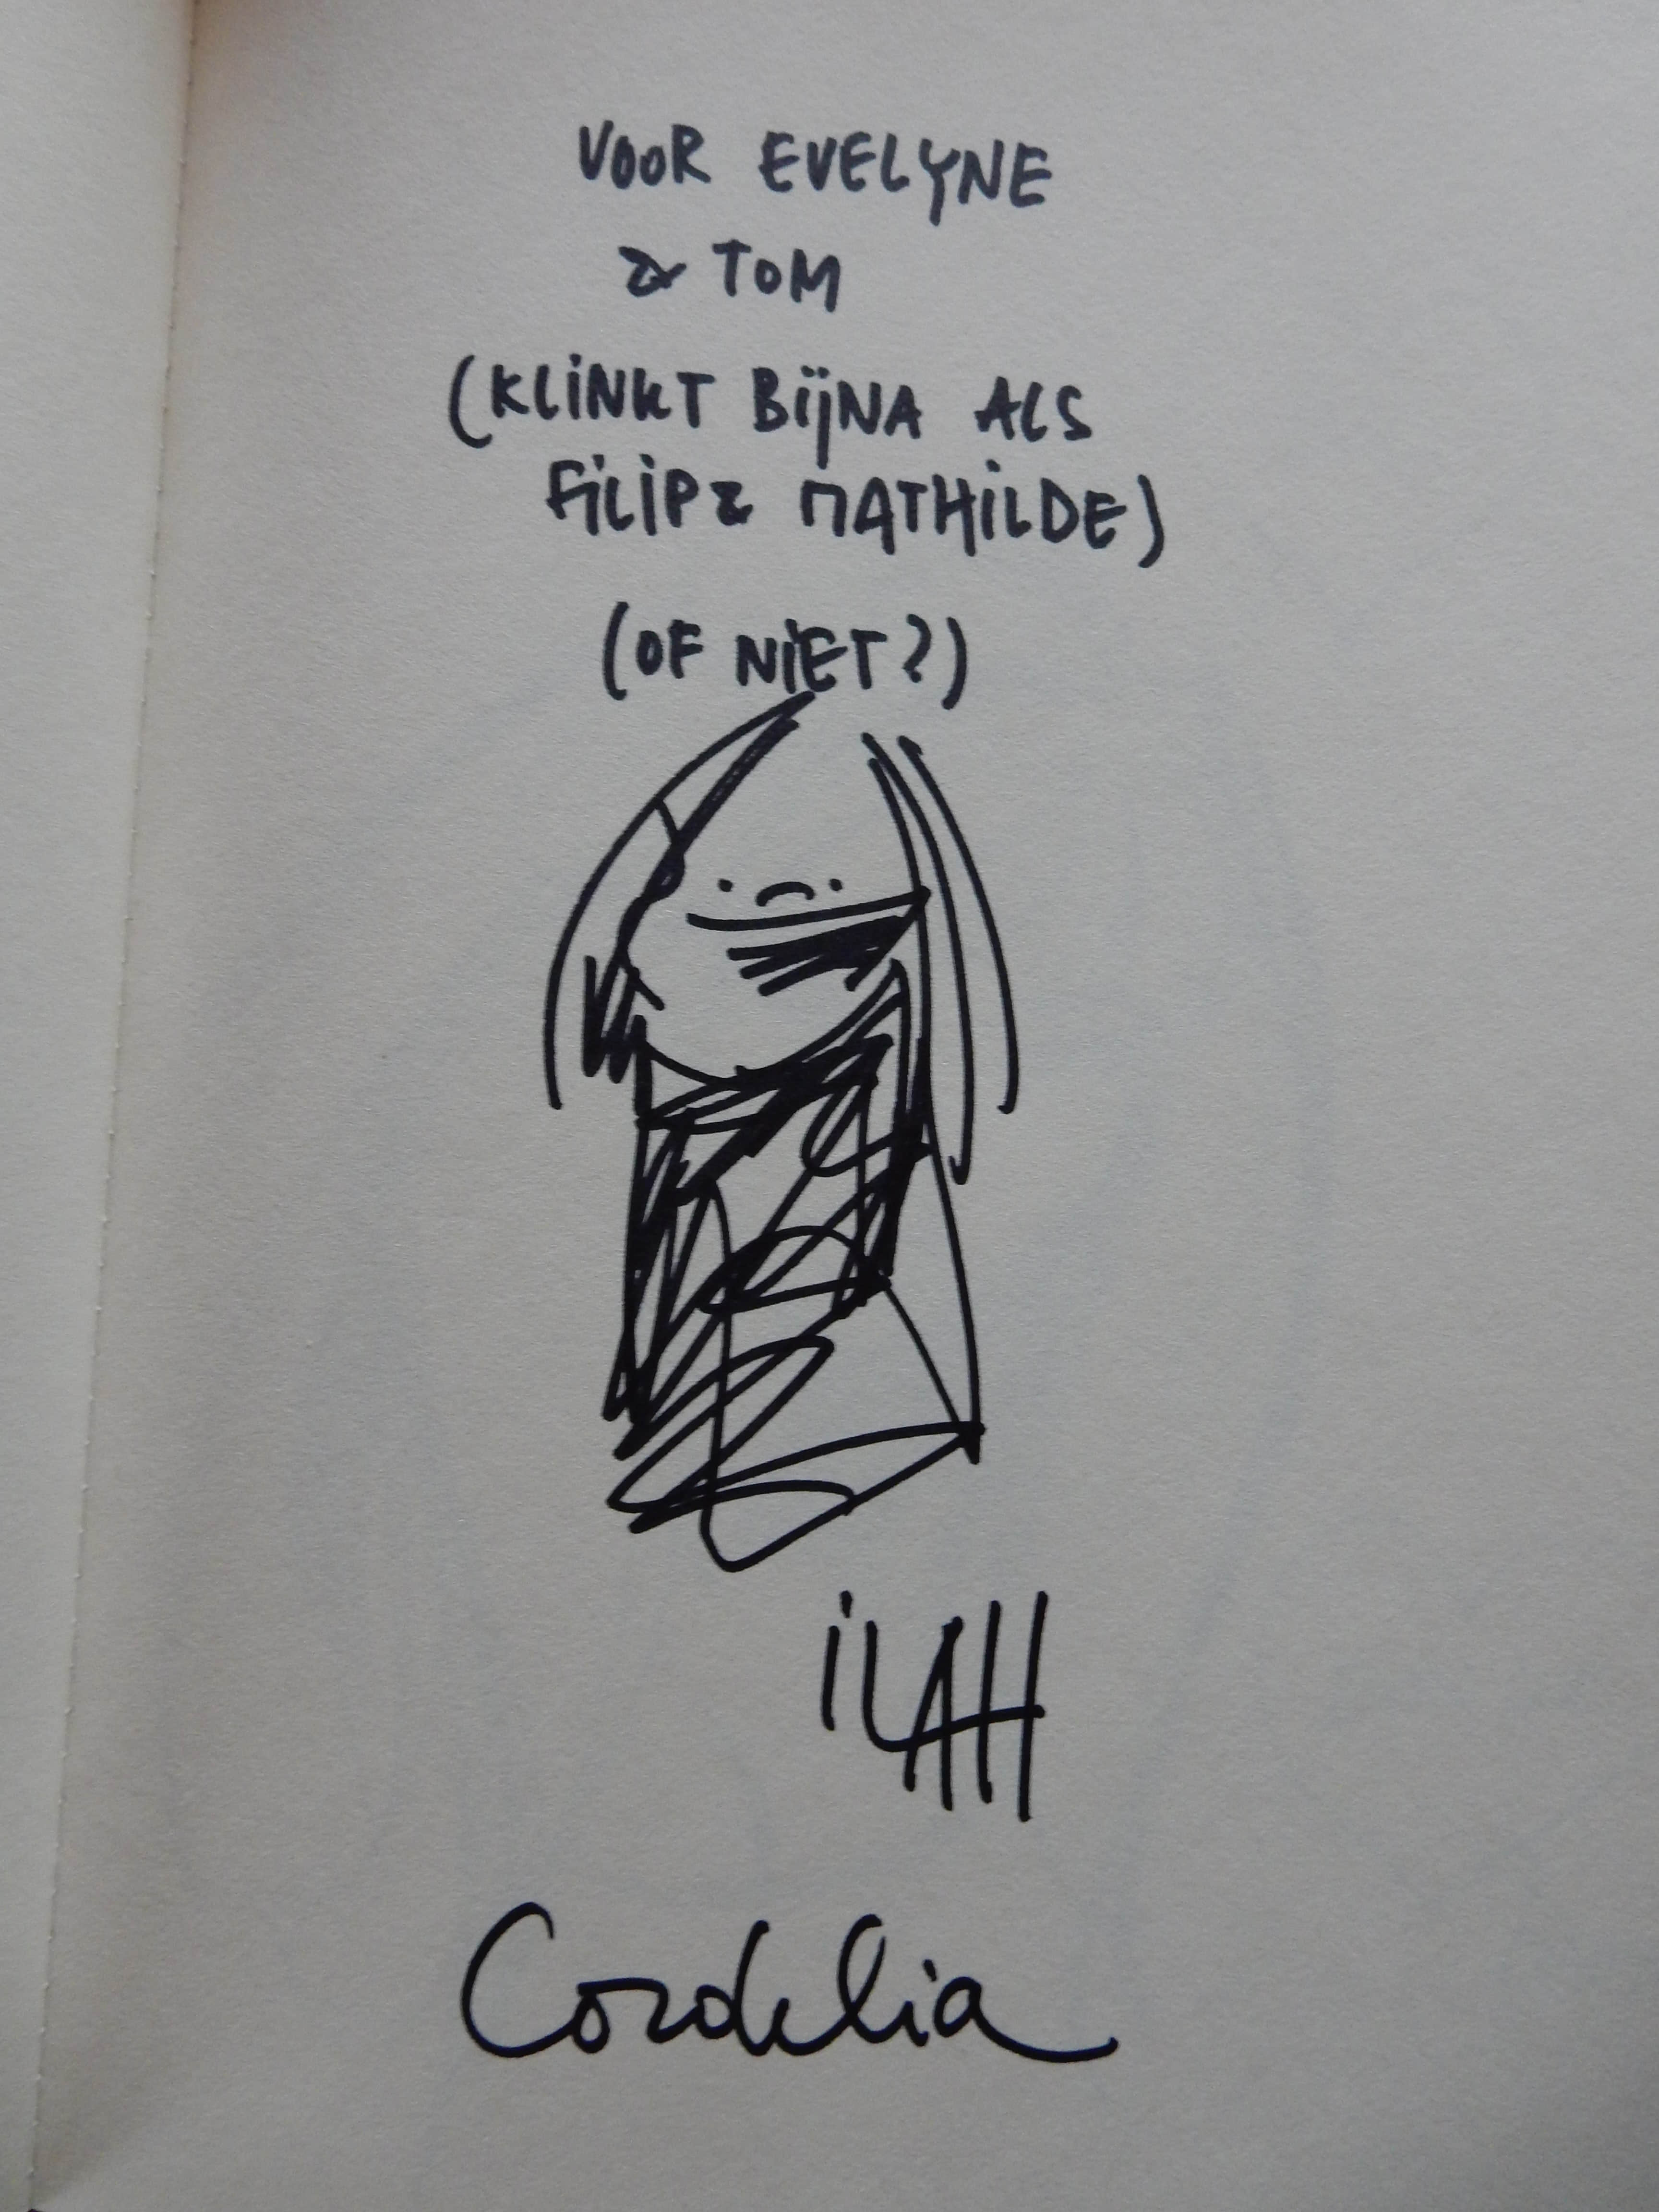 VOOR EVELYNE
& TOM
(KLINKT BIJNA ALS
FILIP & MATHILDE)
(OF NIET?)
ILAH
Cordelia